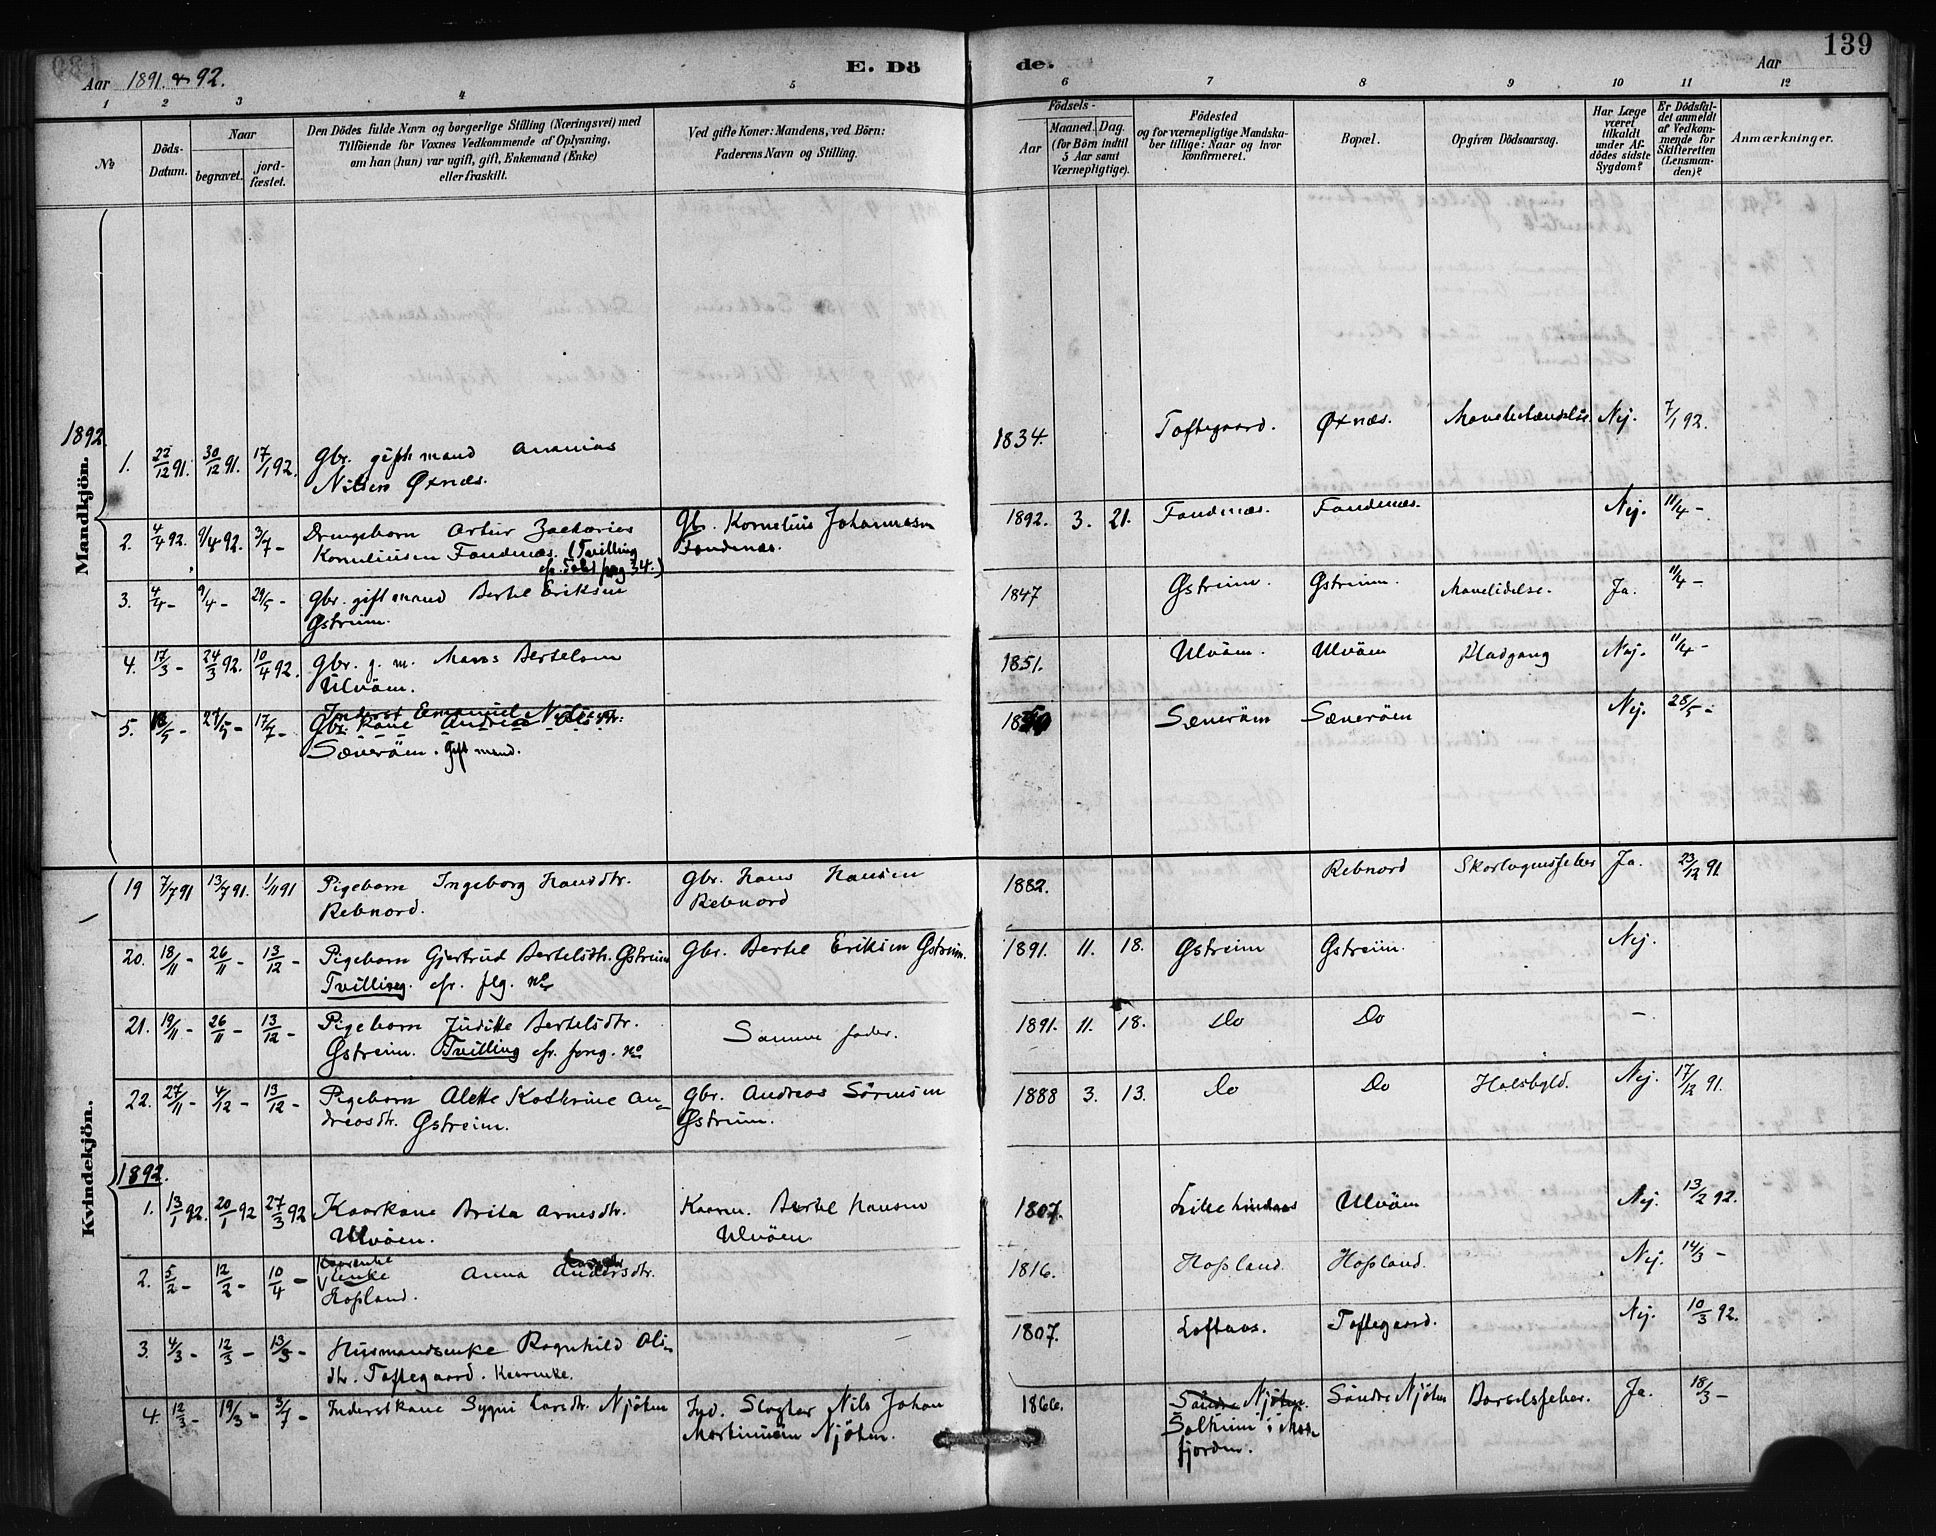 139
Aar 1891 & 92.
E. Döde.
Aar
1 2 3 4 5 6 7 8 9 10 11 12
No
Döds-Datum.
Naar
begravet.
jord-fæstet.
Den Dödes fulde Navn og borgerlige Stilling (Næringsvei) med
Tilföiende for Voxnes Vedkommende af Oplysning,
om han (hun) var ugift, gift, Enkemand (Enke)
eller fraskilt.
Ved gifte Koner: Mandens, ved Börn:
Faderens Navn og Stilling.
Födsels-
Aar
Maaned. Dag.
(for Börn indtil
5 Aar samt
Værnepligtige).
Födested
og for værnepligtige Mandska-
ber tillige: Naar og hvor
konfirmeret.
Bopæl.
Opgiven Dödsaarsag.
Har Læge
været
tilkaldt
under Af-
dødes sidste
Sygdom?
Er Dödsfal-
det anmeldt
af Vedkom-
mende for
Skifteretten
(Lensman-
den)?
Anmærkninger.
Mandkjön.
1892
1. 22/12 91. 30/12 91. 17/1 92. Gbr. gift mand Ananias 1834. Toftegaard. Øxnæs. Nej. 7/1 92.
Nilsen Øxnæs.
2. 4/4 92. 9/4 92. 3/7 - Drengebarn Artur Zacharias Gbr. Kornelius Johannesen 1892. 3. 21. Fondenæs. Fondenæs. Nej. 11/4 -
Korneliusen Fondenæs. (Tvilling Fondenæs.
pag 34.)
3. 4/4 - 9/4 - 29/5 - Gbr. gift mand Bertel Eriksen 1847 Østreim. Østreim. Mavelidelse. Ja. 11/4 -
Østreim.
4. 17/3 - 24/3 92. 10/4 92. Gbr. g. m. Mons Bertelsen 1851. Ulvöen. Ulvöen Nej. 11/4 -
Ulvöen.
5. 18/5 - 27/5 - 17/7 - Inderst Emanuel Nilsen Sæveröen Sæveröen Nej. 28/5 -
Gbr. kone Andrea
Sæveröen. Gift mand.
Kvindekjön.
19 7/7 91 13/7 91. 1/11 91 Pigebarn Ingeborg Hansdtr. Gbr. Hans Hansen 1882. Rebnord Skarlagensfeber Ja. 23/12 91
Rebnord. Rebnord
20. 18/11 - 26/11 - 13/12 - Pigebarn Gjertrud Bertelsdtr. Østreim Gbr. Bertel Eriksen Østreim. 1891. 11. 18. Østreim Østreim. Nej.
Tvilling. cfr. flg. No
21. 19/11 - 26/11 - 13/12 - Pigebarn Juditte Bertelsdtr. Samme fader. 1891. 11. 18. Do Do -
Østreim. Tvilling cfr. forrg. No
22. 27/11 - 4/12 - 13/12 - Pigebarn Alette Kathrine An- Gbr. Andreas Sörensen 1888 3. 13. Do Do Halsbyld. Nej. 17/12 91.
dreasdtr. Østreim. Østreim.
1892.
1. 13/1 92. 20/1 92 27/3 92 Kaarkone Brita Arnesdtr. Kaarm. Bertel Hansen 1807. Lille Lindaas Ulvöen Nej. 13/2 92.
Ulvöen. Ulvöen.
2. 5/2 - 12/2 - 10/4 - Kaarenke
Enke Anna Andersdtr. 1816. Hopland. Hopland. Nej. 14/3 -
Hopland.
3. 4/3 - 12/3 - 13/3 - Husmandsenke Ragnhild Ols- - 1807. Loftaas. Toftegaard. Nej. 10/3 92.
dtr. Toftegaard. Kaarenke.
4. 12/3 - 19/3 - 3/7 - Inderstkone Sygni Larsdtr. Njöten Ind. Slagter Nils Johan 1866. Söndre Njöten. Söndre Njöten Barselsfeber. Ja. 18/3 -
Martinusen Njöten. Solheim i Mas-
fjorden.